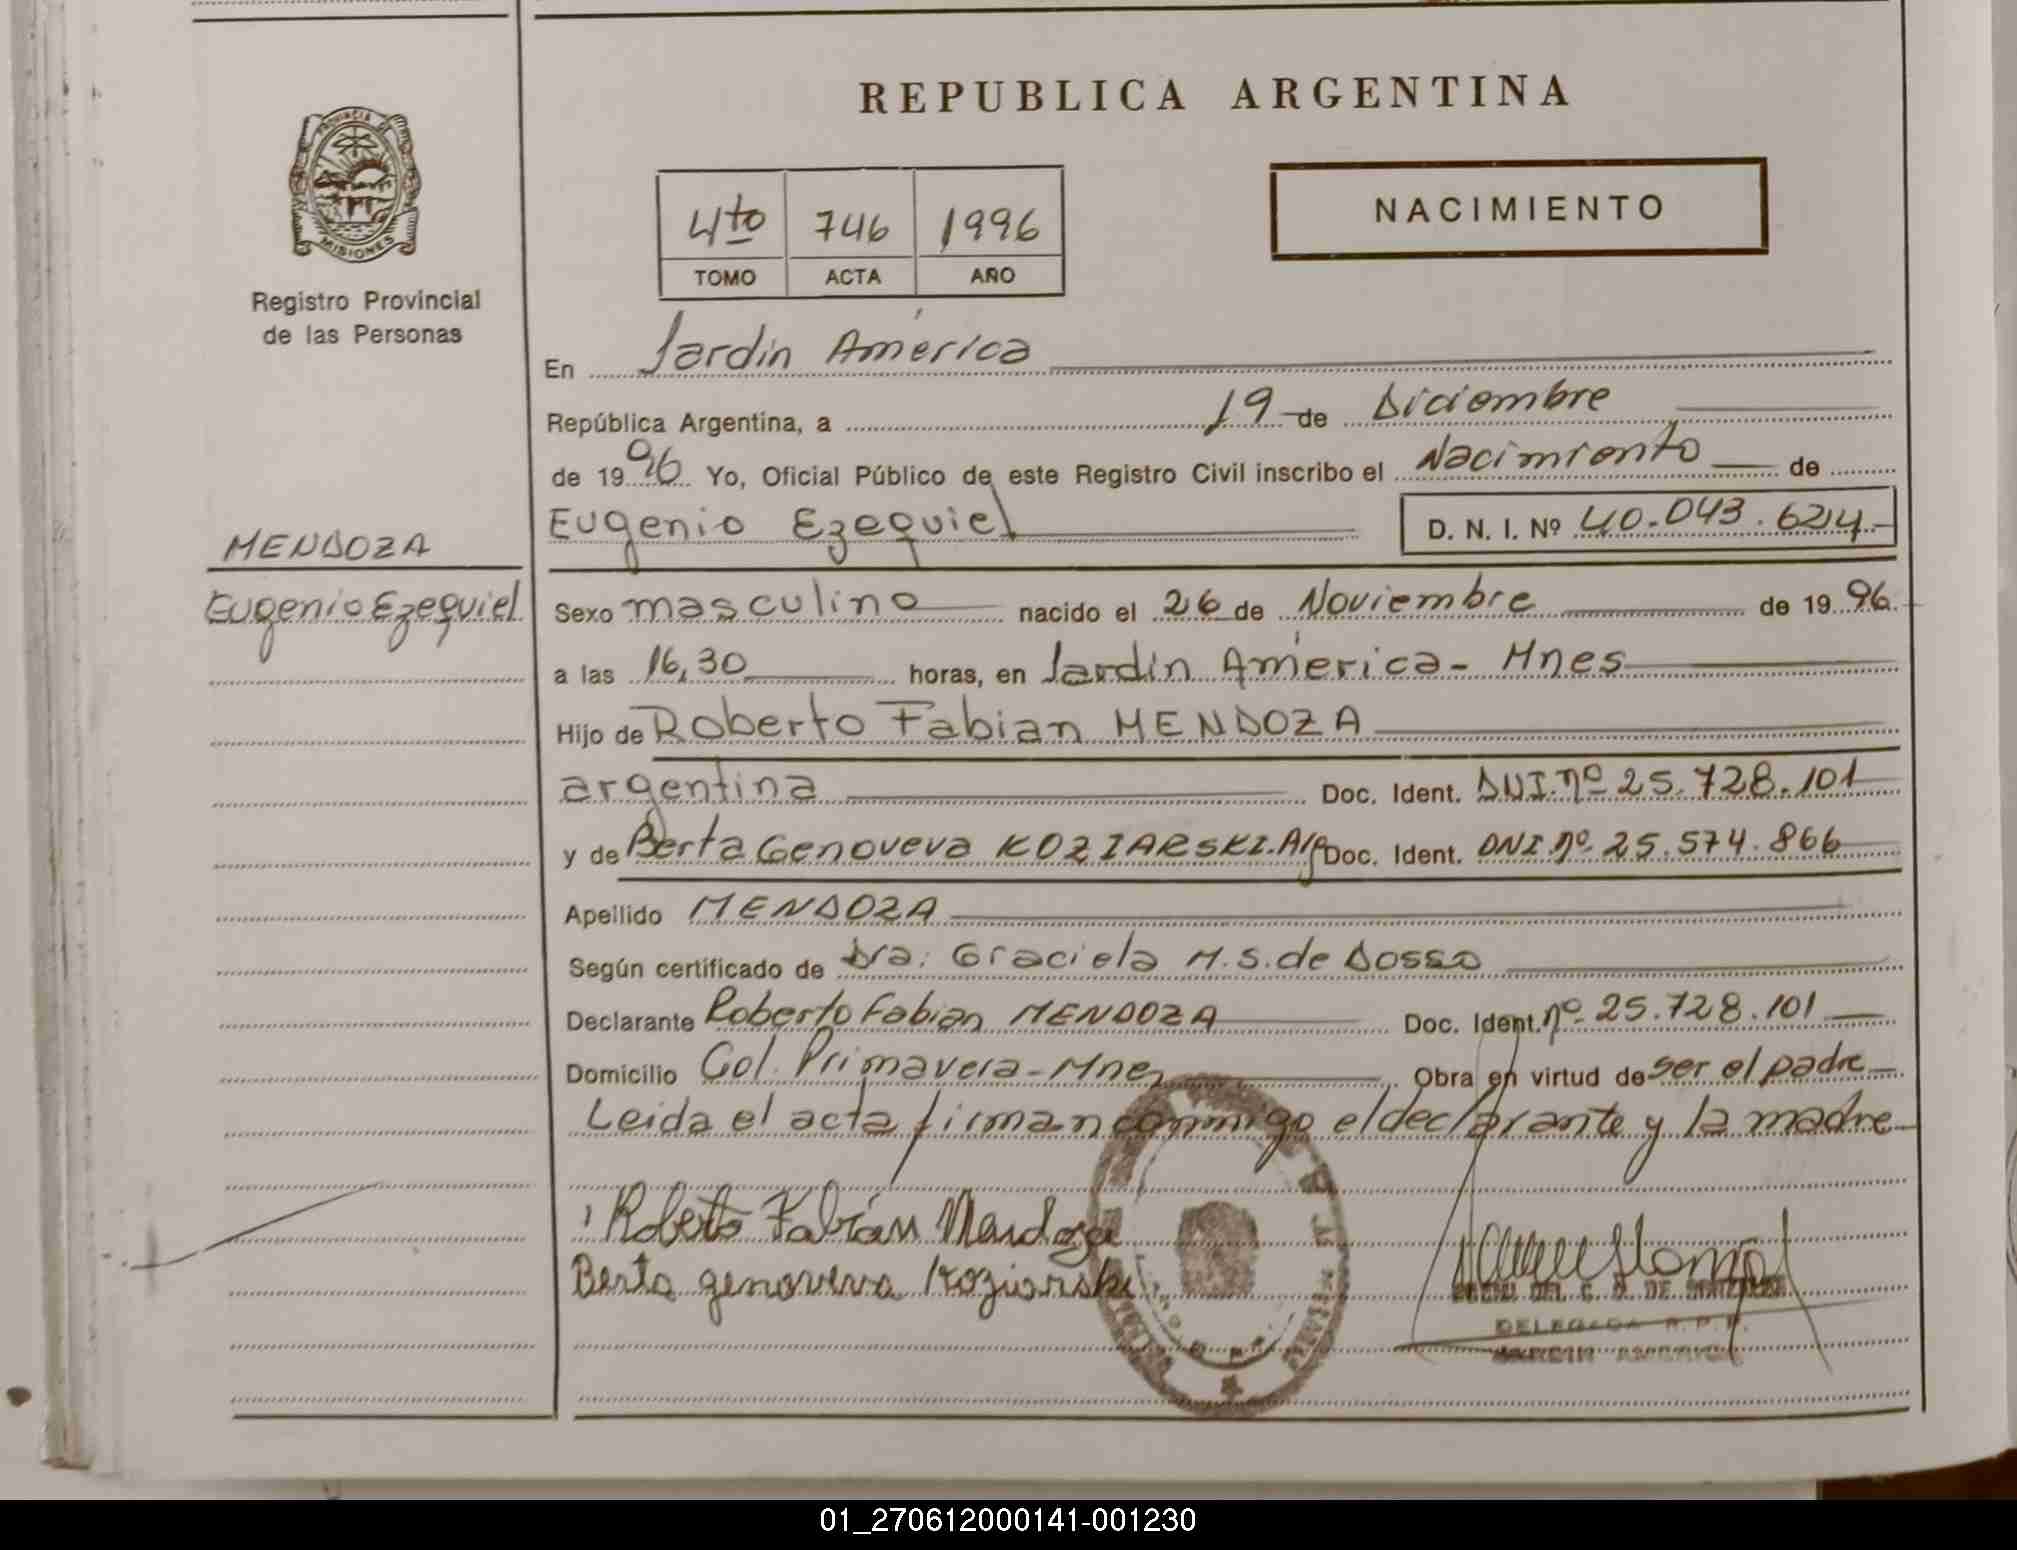 REPUBLICA ARGENTINA
PROVINCIA DE
MISIONES
Registro Provincial
de las Personas
4to 746 1996
TOMO ACTA AÑO
NACIMIENTO
En Jardín América
República Argentina, a 19 de Diciembre
de 1996 Yo, Oficial Público de este Registro Civil inscribo el Nacimiento de
MENDOZA
Eugenio Ezequiel
Eugenio Ezequiel D. N. I. Nº 40.043.624
Sexo masculino nacido el 26 de Noviembre de 1996
a las 16,30 horas, en Jardín América - Mnes
Hijo de Roberto Fabian MENDOZA
argentina Doc. Ident. DNI. nº 25.728.101
y de Berta Genoveva KOZIARSKI. Arg Doc. Ident. DNI. nº 25.574.866
Apellido MENDOZA
Según certificado de Dra: Graciela M.S. de Dosso
Declarante Roberto Fabian MENDOZA Doc. Ident. nº 25.728.101
Domicilio Col. Primavera - Mnes Obra en virtud de ser el padre
Leida el acta firman conmigo el declarante y la madre
Roberto Fabián Mendoza
Berta genoveva Koziarski
DELEGADA R.P.P.
JARDIN AMERICA
01_270612000141-001230